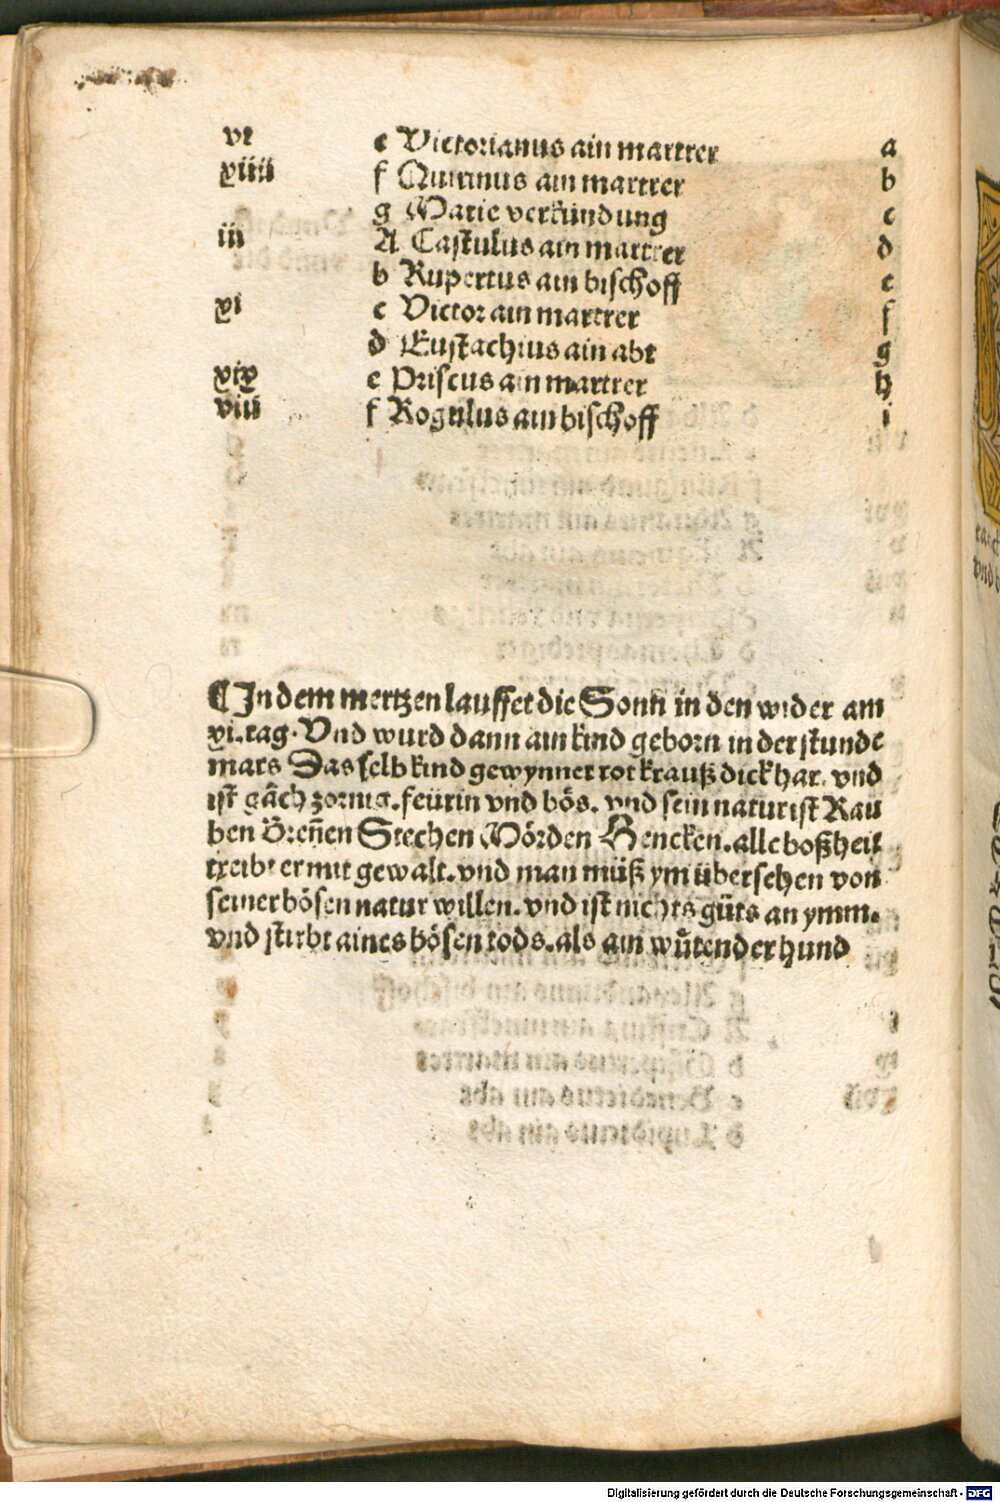 vi e Victorianus ain martrer a
xiiii f Quirinus ain martrer b
g Marie verkündung c
iii A Castulus ain martrer d
b Rupertus ain bischoff e
xi c Victor ain martrer f
d Eustachius ain abt g
xix e Priscus ain martrer h
viii f Rogulus ain bischoff i
¶ In dem mertzen lauffet die Sonn in den wider am
xi. tag. Vnd wurd dann ain kind geborn in der stunde
mars Das selb kind gewynnet rot krauß dick har. vnd
ist gäch zornig. feürin vnd bös. vnd sein natur ist Rau
ben Breñen Stechen Mörden Hencken. alle boßheit
treibt er mit gewalt. vnd man müß ym übersehen von
seiner bösen natur willen. vnd ist nichts güts an ymm.
vnd stirbt aines bösen tods. als ain wütender hund
Digitalisierung gefördert durch die Deutsche Forschungsgemeinschaft - DFG